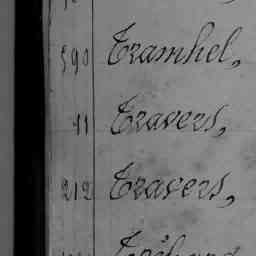 590 Tramhel,
11 Travers,
212 Travers,